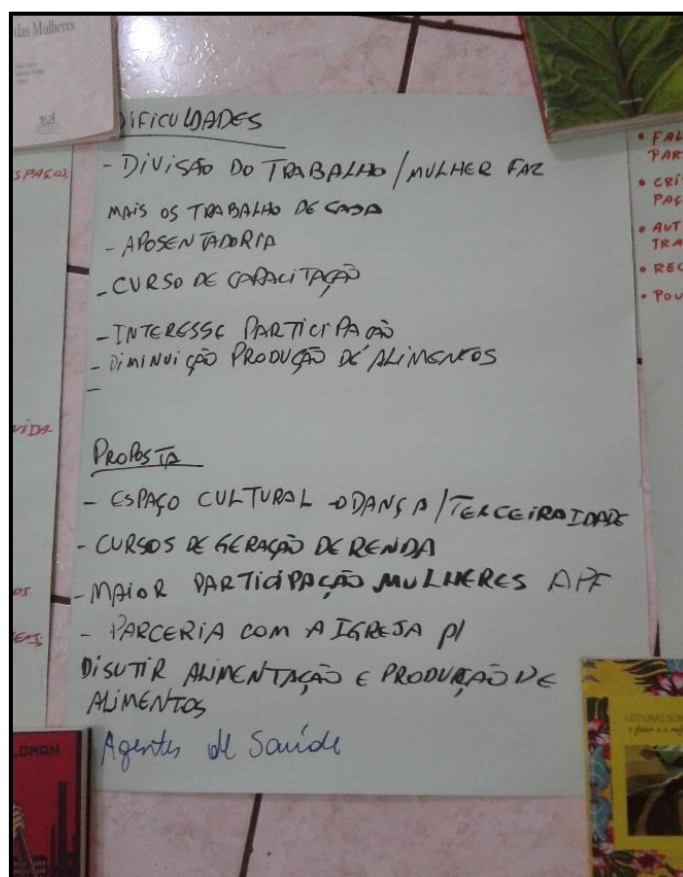 das Mulheres
DIFICULDADES
- DIVISÃO DO TRABALHO/MULHER FAZ
MAIS OS TRABALHO DE CASA
- APOSENTADORIA
- CURSO DE CAPACITAÇÃO
- INTERESSE PARTICIPAÇÃO
- DIMINUIÇÃO PRODUÇÃO DE ALIMENTOS
-
PROPOSTA
- ESPAÇO CULTURAL → DANÇA/TERCEIRA IDADE
- CURSOS DE GERAÇÃO DE RENDA
- MAIOR PARTICIPAÇÃO MULHERES APF
- PARCERIA COM A IGREJA P/
DISUTIR ALIMENTAÇÃO E PRODUÇÃO DE
ALIMENTOS
Agentes de Saúde
SPAÇOS
VIDA
• FAL
PAR
• CRÍ
PAÇ
• AUT
TRA
• REC
• POU
LDMAN
LEITURAS SOB